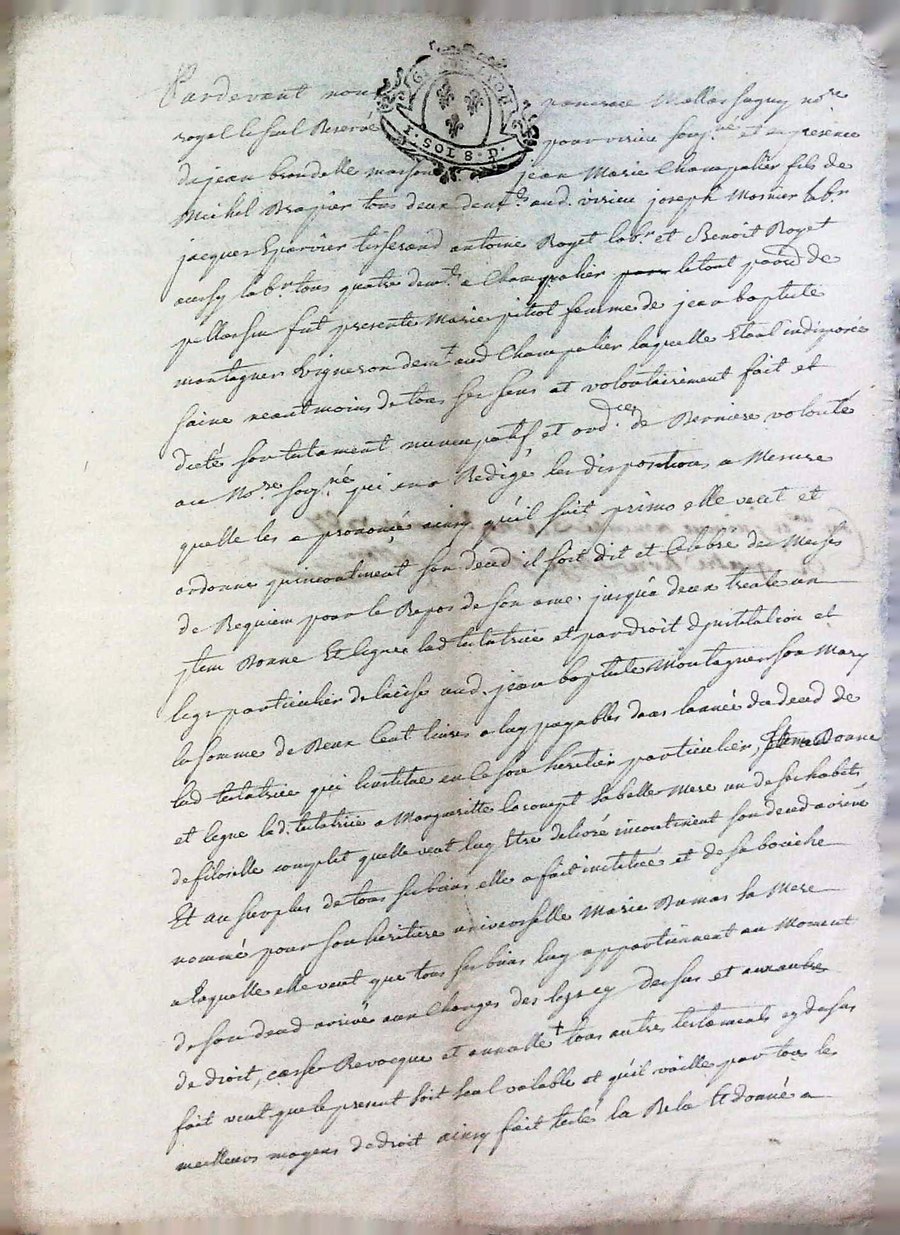 Pardevant nous
GEN. DE LYON
I. SOL 8. D.
royal le seul Reservé pour virieu soug.né et en presence
de jean brondelle masson jean Marie Champalier fils de
Michel Drapier tous deux dem.ts aud. virieu joseph Mosnier lab.r
jacques Eparvier tisserand antoine Royet lab.r et Benoit Royet
aussy lab.r tous quatre dem.ts a Champalier le tout parr.sse de
pellussin fut presente Marie pitiot femme de jean baptiste
montagner Vigneron dem.t aud Champalier laquelle Etant indisposée
saine neantmoins de tous ses sens at volontairement fait et
dicté son testament nuncupatif et ord.ce de Derniere volonté
au No.re soug.né qui en a Redigé les dispositions a Mesure
quelle les a prononcé ainsy qu'il suit primo elle veut et
ordonne qu'incontinent son deced il soit dit et Celebré des Messes
de Requiem pour le Repos de son ame jusqu'a deux trente un
jtem Donne Et legue lad testatrice et par droit d'jnstitution et
legs particulier delaisse aud. jean baptiste Montagner son Mary
la somme de Deux Cent livres a luy payables dans lannée du deced de
lad testatrice qui linstitue en ce son heritier particulier, Jtem Donne
et legue lad. testatrice a Margueritte sa belle Mere un de ses habits
de filoselle complet quelle veut luy Etre delivré incontinent son deced arrivé
Et au surplus de tous ses biens elle a fait institué et de sa bouche
nommé pour son heritiere universelle Marie Dumas sa Mere
a laquelle elle veut que tous ses biens luy appartiennent au Moment
de son deced arrivé aux Charges des legs cy dessus et autres
de droit, casse Revocque et annulle + tous autres testaments cy dessus
fait veut que le present soit seul valable et qu'il vaille par tous les
meilleurs moyens de droit ainsy fait testé lu Relu Et donné a